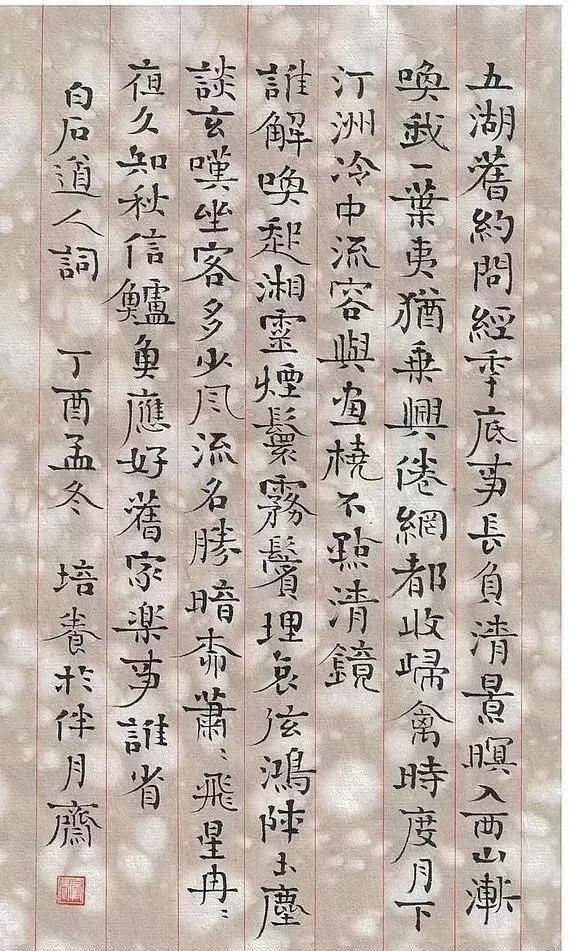 五湖舊約問經年底事長負清景暝入西山漸
喚我一葉夷猶乘興倦網都收歸禽時度月下
汀洲冷中流容與畫橈不點清鏡
誰解喚起湘靈煙鬟霧鬢理哀弦鴻陣玉麈
談玄嘆坐客多少风流名勝暗柳蕭〻飛星冉〻
夜久知秋信鱸魚應好舊家楽事誰省
白石道人詞 丁酉孟冬 培養於伴月齋